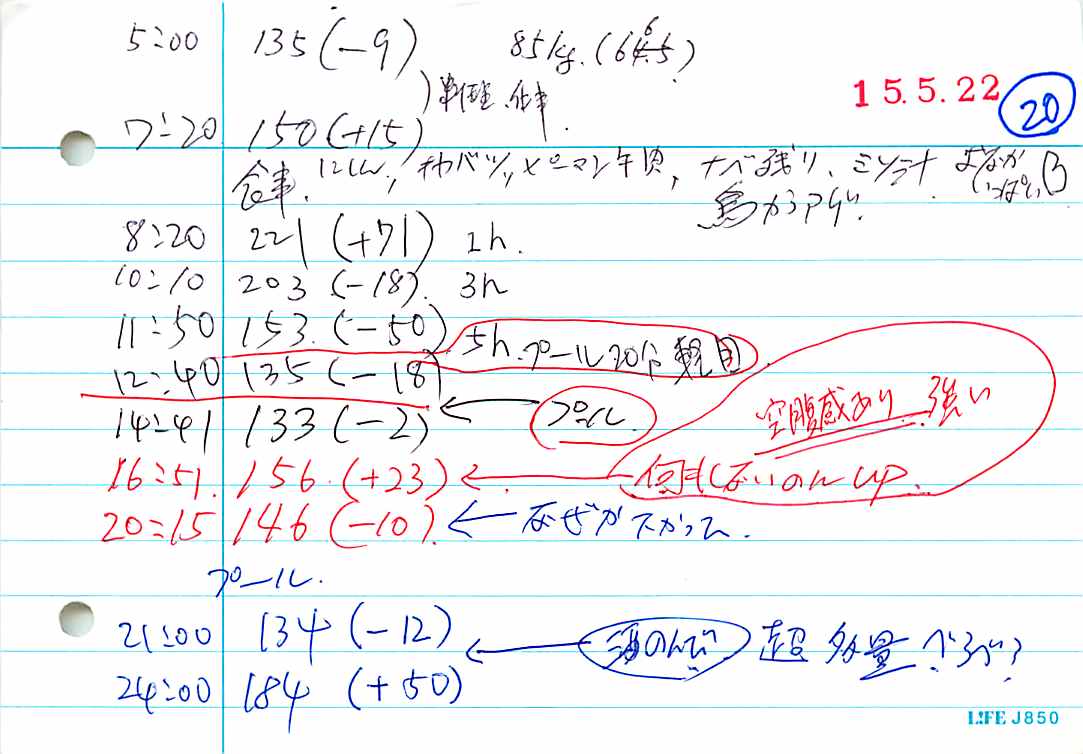 5:00 135 (-9) 85kg. (64.5) 6
15.5.22 20
) 準備、仕事.
7:20 150 (+15)
食事. にしん, キャベツ, ピーマン牛肉, ナベ残り、ミソラーメン おなかいっぱい
鳥から
8:20 221 (+71) 1h.
10:10 203 (-18). 3h
11:50 153. (-50) 5h. プール20分 軽目
12:40 135 (-18)
14:41 133 (-2) ← プール.
空腹感あり 強い
16:51. 156. (+23) ← 何もしないのに up.
20:15 146 (-10). ← なぜか下がって.
プール.
21:00 134 (-12)
← 酒のんで 超多量
24:00 184 (+50)
LIFE J850